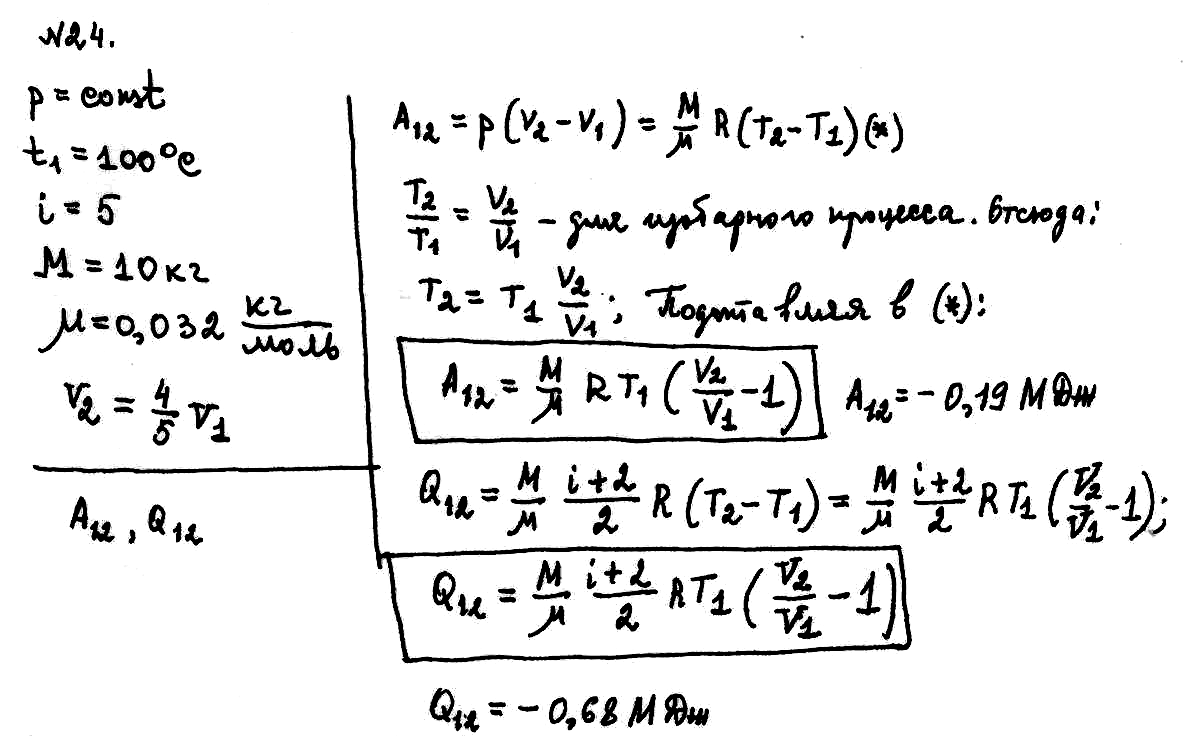 №24.
p = const
t₁ = 100°C
i = 5
M = 10 кг
μ = 0,032 кг/моль
V₂ = 4/5 V₁
A₁₂, Q₁₂
A₁₂ = p(V₂ - V₁) = M/μ R(T₂ - T₁) (*)
T₂/T₁ = V₂/V₁ - для изобарного процесса. Отсюда:
T₂ = T₁ V₂/V₁; Подставляя в (*):
A₁₂ = M/μ R T₁ (V₂/V₁ - 1) A₁₂ = - 0,19 МДж
Q₁₂ = M/μ (i+2)/2 R (T₂ - T₁) = M/μ (i+2)/2 R T₁ (V₂/V₁ - 1);
Q₁₂ = M/μ (i+2)/2 R T₁ (V₂/V₁ - 1)
Q₁₂ = - 0,68 МДж